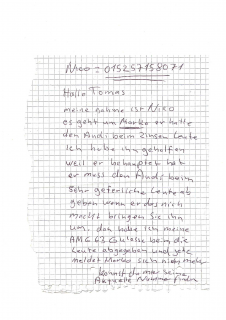 Nico = 015257158071
Hallo Tomas
meine nahme ist Nico
es geht um Marko er hatte
den Andi beim Zinsen Leute
ich habe ihn geholfen
weil er behauptet hat
er muss den Andi beim
sehr geferliche Leute ab
geben wenn er das nich
macht bringen sie ihn
um. dan habe ich meine
AMG 63 G klasse beim die
Leute abgegeben und jetz
meldet Marko sich nich mehr
könnst du mir seine
Aktuele Nummer finden